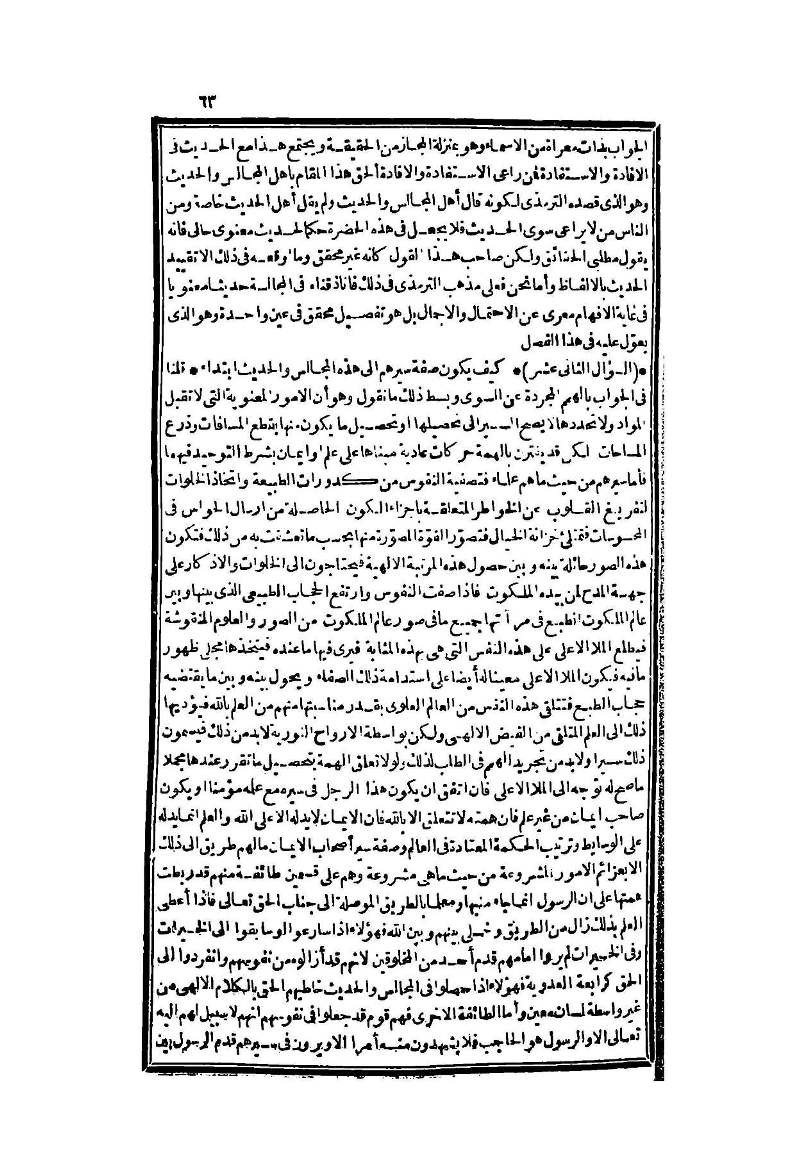 ٦٣
الجواب بذات معراة من الاسماء وهو بمنزلة المجاز من الحقيقة ويجتمع هذا مع الحديث فى
الافادة والاستفادة فمن راعى الاستفادة والافادة ألحق هذا المقام بأهل المجالس والحديث
وهو الذى قصده الترمذى لكونه قال أهل المجالس والحديث ولم يقل أهل الحديث خاصة ومن
الناس من لا يراعى سوى الحديث فلا يجعل فى هذه الحضرة حكما لحديث معنوى حالى فانه
يقول مطلبى الحقائق ولكن صاحب هذا القول كانه غير محقق وما وقعه فى ذلك الا تقييد
الحديث بالالفاظ وأما نحن فعلى مذهب الترمذى فى ذلك فانا ذقناه فى المجالسة حديثا معنويا
فى غاية الافهام معرى عن الاحتمال والاجمال بل هو تفصيل محقق فى عين واحدة وهو الذى
يعوّل عليه فى هذا الفصل
* (السؤال الثانى عشر) * كيف يكون صفة سيرهم الى هذه المجالس والحديث ابتداء * قلنا
فى الجواب بالهمم المجردة عن السوى وبسط ذلك ما نقول وهو أن الامور المعنوية التى لا تقبل
المواد ولا تحددها لا يصح السير الى تحصيلها او تحصيل ما يكون منها بقطع المسافات وذرع
المساحات لكن قد يقترن بالهمة حركات مادية مبناها على علم او ايمان بشرط التوحيد فيهما
فأما سيرهم من حيث ما هم علماء فتصفية النفوس من كدورات الطبيعة واتخاذ الخلوات
لتفريغ القلوب عن الخواطر المتعلقة باجزاء الكون الحاصلة من ارسال الحواس فى
المحسوسات فتمتلئ خزانة الخيال فتصوّر القوة المصورة منها بحسب ما تعشقت به من ذلك فتكون
هذه الصور حائلة بينه وبين حصول هذه المرتبة الالهية فيحتاجون الى الخلوات والاذكار على
جهة المدح لمن بيده الملكوت فاذا صفت النفوس وارتفع الحجاب الطبيعى الذى بينها وبين
عالم الملكوت انطبع فى مرآتها جميع ما فى صور عالم الملكوت من الصور والعلوم المنقوشة
فيطلع الملا الاعلى على هذه النفس التى هى بهذه المثابة فيرى فيها ما عنده فيتخذها مجلى ظهور
ما فيه فيكون الملا الاعلى معينا له أيضا على استدامة ذلك الصفاء ويحول بينه وبين ما يقتضيه
حجاب الطبع فتتلقى هذه النفس من العالم العلوى بقدر مناسبتها منهم من العلم بالله فيؤديها
ذلك الى العلم المتلقى من الفيض الالهى ولكن بواسطة الارواح النورية لابد من ذلك فيسمون
ذلك سيرا ولابد من تجريد الهمم فى الطلب لذلك ولولا تعلق الهمة بتحصيل ما تقرر عندها مجملا
ما صح له توجه الى الملا الاعلى فان اتفق ان يكون هذا الرجل فى سيره مع علمه مؤمنا او يكون
صاحب ايمان من غير علم فان همته لا تتعلق الا بالله فان الايمان لا يدله الا على الله والعلم انما يدله
على الوسايط وترتيب الحكمة المعتادة فى العالم وصفة سير أصحاب الايمان ما لهم طريق الى ذلك
الا بعزائم الامور المشروعة من حيث ما هى مشروعة وهم على قسمين طائفة منهم قد ربطت
همتها على ان الرسول انما جاء منبها ومعلما بالطريق الموصلة الى جناب الحق تعالى فاذا أعطى
العلم بذلك زال من الطريق وخلى بينهم وبين الله فهؤلاء اذا سارعوا او سابقوا الى الخيرات
وفى الخيرات لم يروا امامهم قدم أحد من المخلوقين لانهم قد أزالوه من نفوسهم وانفردوا الى
الحق كرابعة العدوية فهؤلاء اذا حصلوا فى المجالس والحديث خاطبهم الحق بالكلام الالهى من
غير واسطة لسان معين وأما الطائفة الاخرى فهم قوم قد جعلوا فى نفوسهم انهم لا سبيل لهم اليه
تعالى الا والرسول هو الحاجب فلا يشهدون منه أمرا الا ويرون فى سيرهم قدم الرسول بين